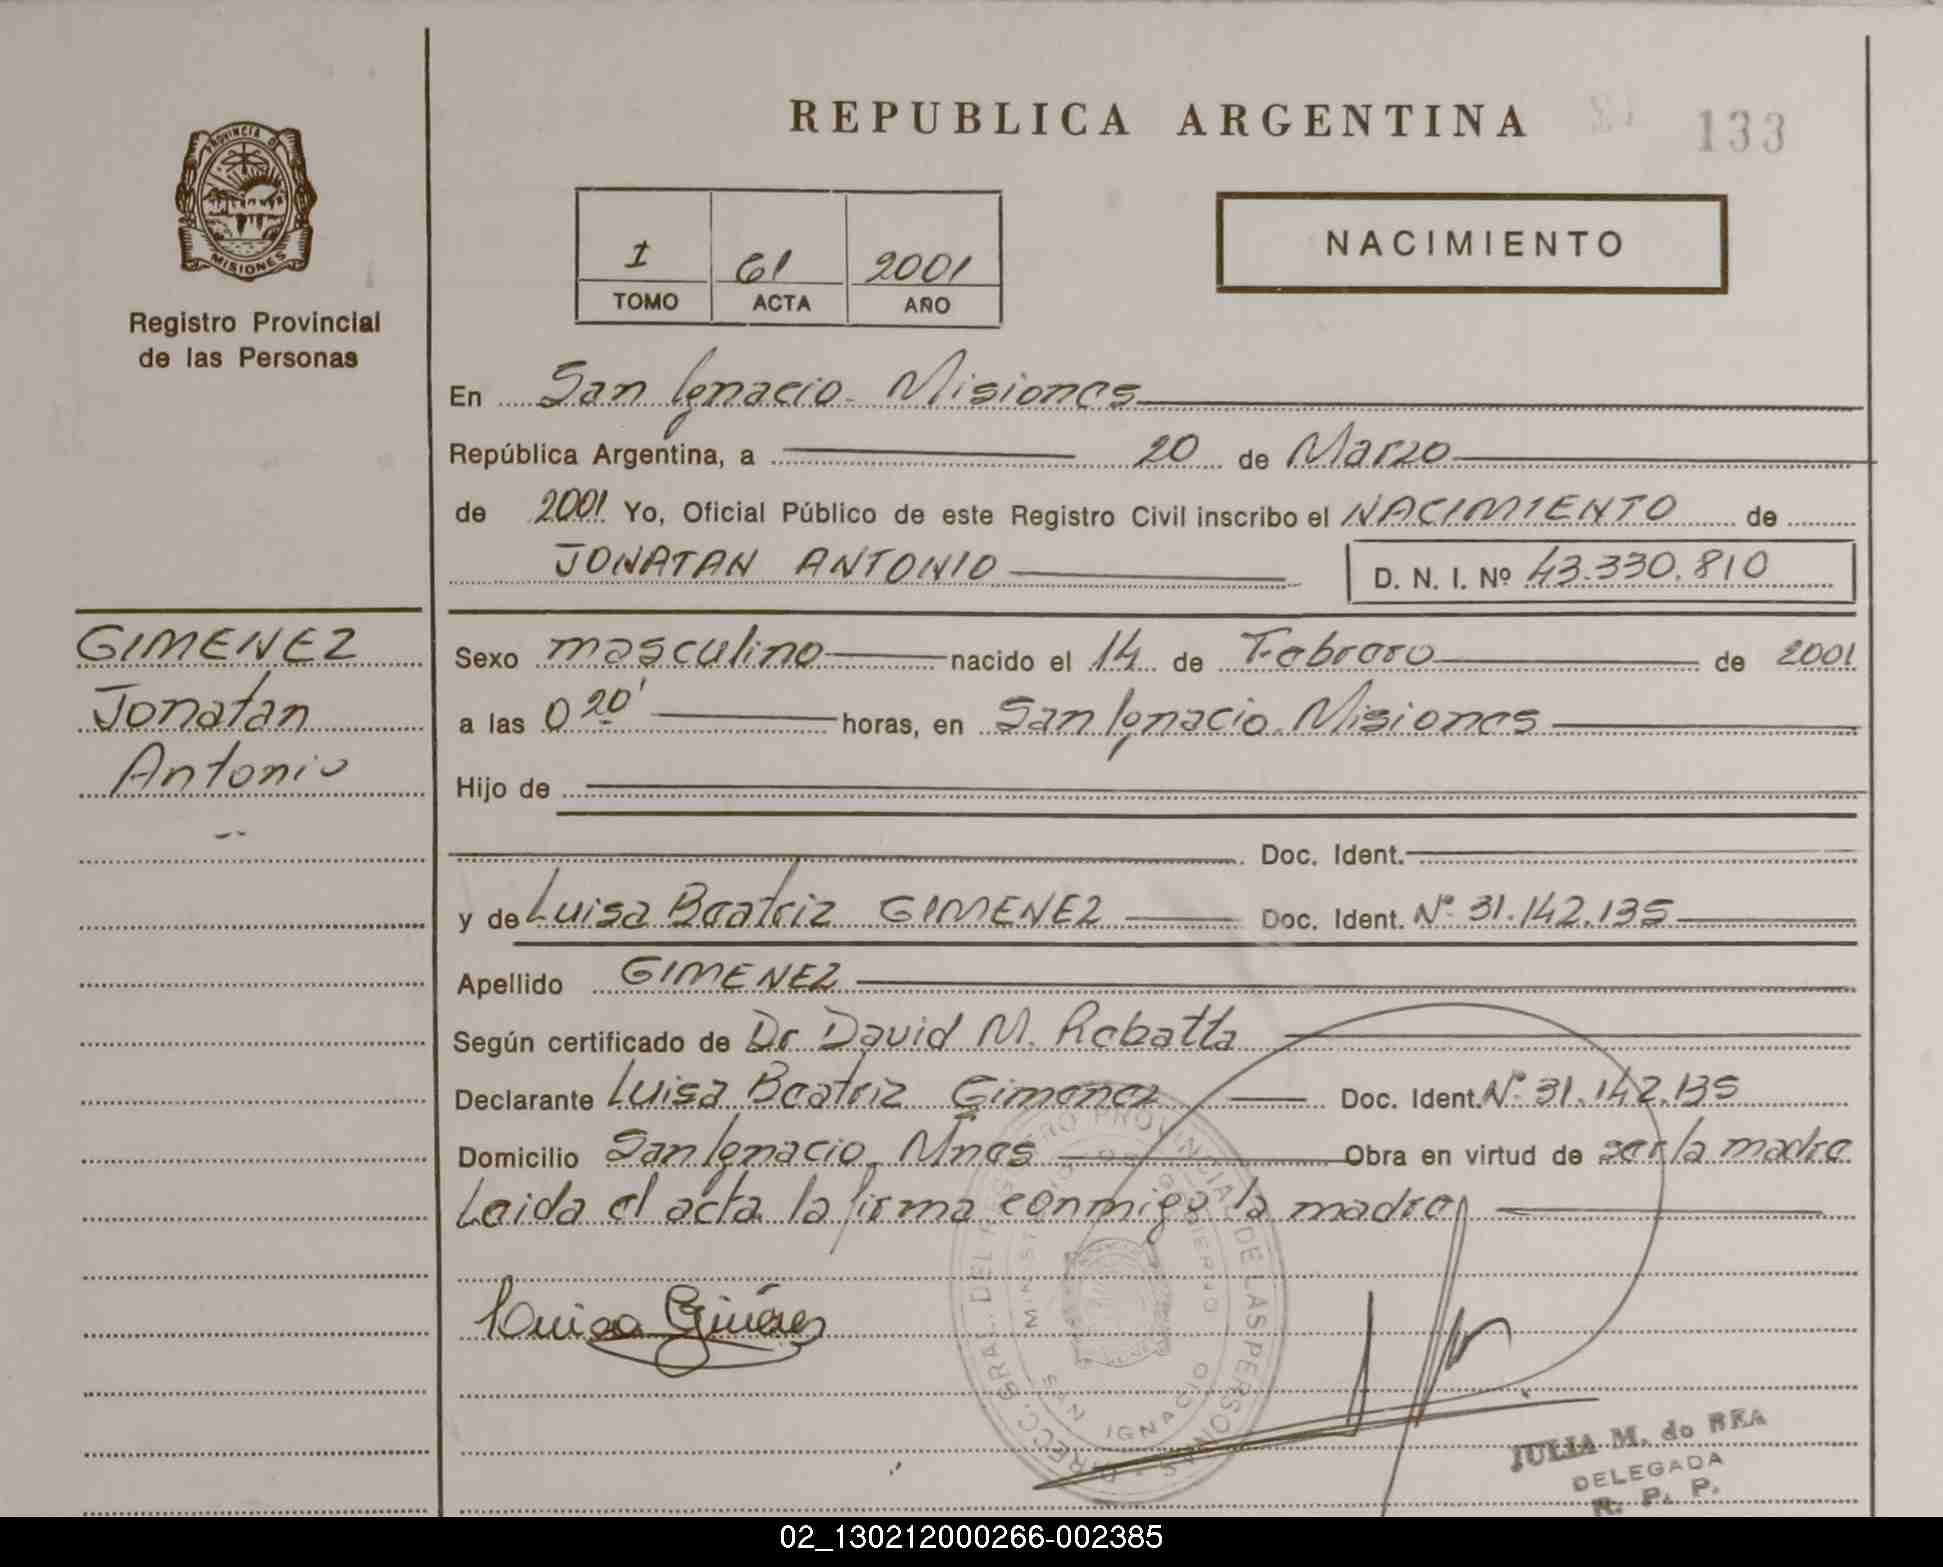 REPUBLICA ARGENTINA
133
PROVINCIA DE
MISIONES
Registro Provincial
de las Personas
I 61 2001
TOMO ACTA AÑO
NACIMIENTO
En San Ignacio - Misiones
República Argentina, a 20 de Marzo
de 2001 Yo, Oficial Público de este Registro Civil inscribo el NACIMIENTO de
JONATAN ANTONIO D. N. I. Nº 43.330.810
GIMENEZ
Jonatan
Antonio
Sexo masculino nacido el 14 de Febrero de 2001
a las 0 20' horas, en San Ignacio - Misiones
Hijo de
Doc. Ident.
y de Luisa Beatriz GIMENEZ Doc. Ident. Nº 31.142.135
Apellido GIMENEZ
Según certificado de Dr David M. Rebatta
Declarante Luisa Beatriz Gimenez Doc. Ident. Nº 31.142.135
Domicilio San Ignacio, Mnes Obra en virtud de ser la madre
Leida el acta la firma conmigo la madre
Luisa Gimenez
DIRECC. GRAL. DEL REGISTRO PROVINCIAL DE LAS PERSONAS
MINISTERIO DE GOBIERNO
SAN IGNACIO
JULIA M. do REA
DELEGADA
R. P. P.
02_130212000266-002385